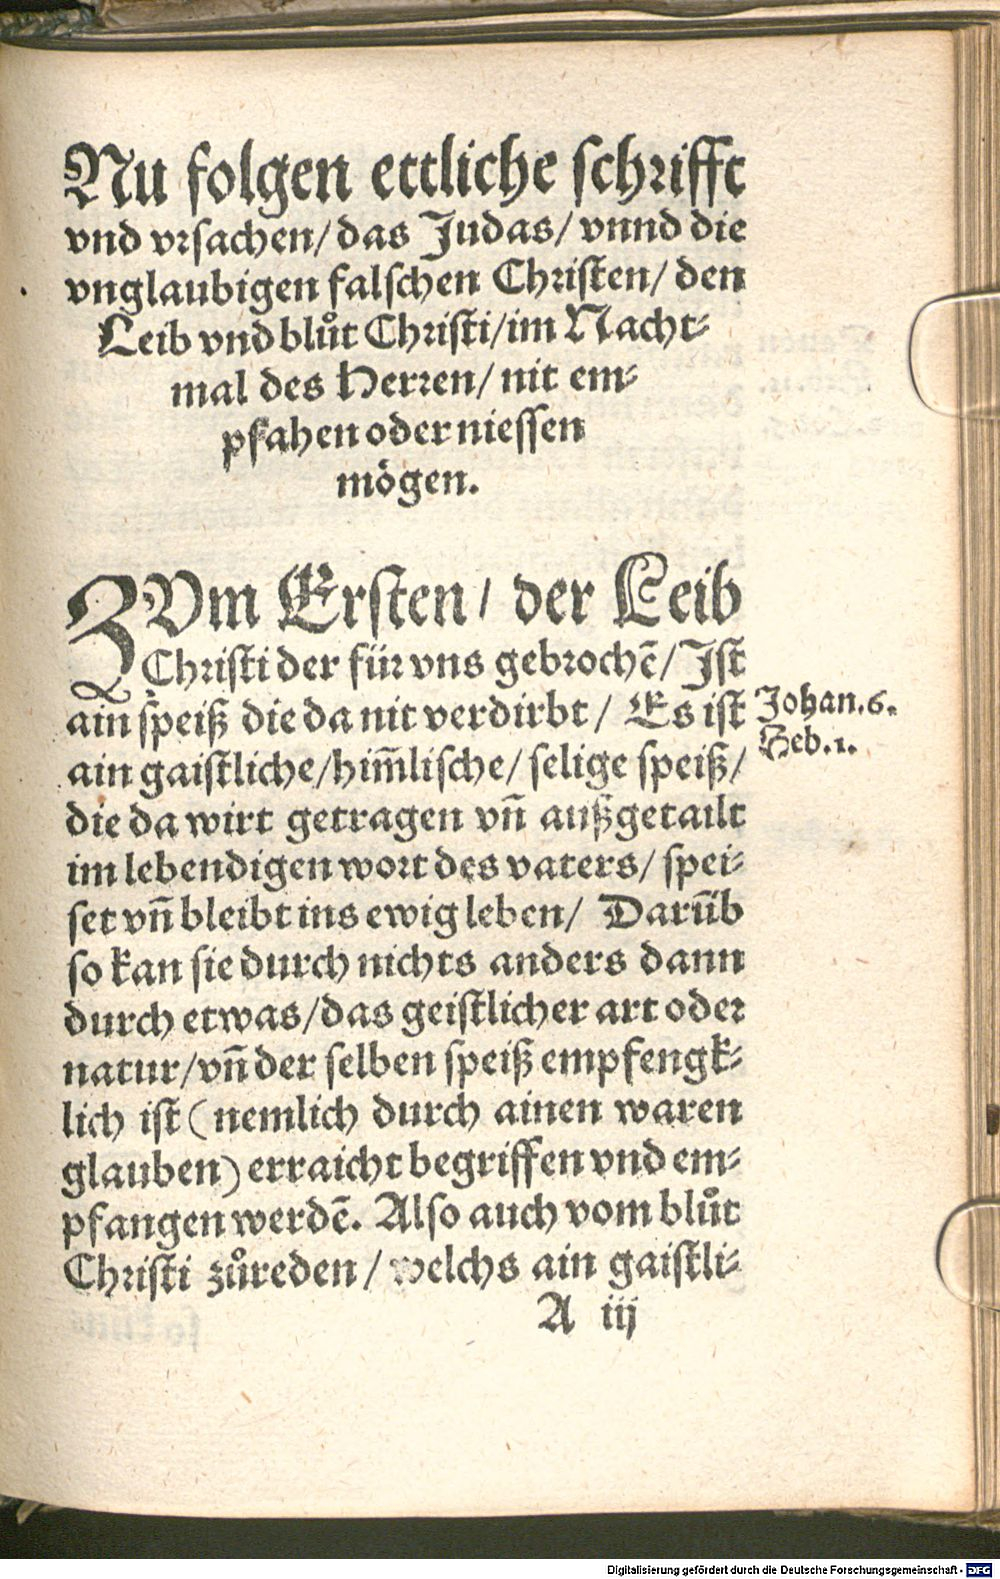 Nu folgen ettliche schrifft
vnd vrsachen/ das Judas/ vnnd die
vnglaubigen falschen Christen/ den
Leib vnd blůt Christi/ im Nacht⸗
mal des Herren/ nit em⸗
pfahen oder niessen
mögen.
ZVm Ersten/ der Leib
Christi der für vns gebrochē/ Ist
ain speiß die da nit verdirbt/ Es ist
Johan.6.
Heb.1.
ain gaistliche/ him̄lische/ selige speiß/
die da wirt getragen vn̄ außgetailt
im lebendigen wort des vaters/ spei⸗
set vn̄ bleibt ins ewig leben/ Darūb
so kan sie durch nichts anders dann
durch etwas/ das geistlicher art oder
natur/ vn̄ der selben speiß empfengk⸗
lich ist (nemlich durch ainen waren
glauben) erraicht begriffen vnd em⸗
pfangen werdē. Also auch vom blůt
Christi zůreden/ welchs ain gaistli⸗
A iij
Digitalisierung gefördert durch die Deutsche Forschungsgemeinschaft - DFG